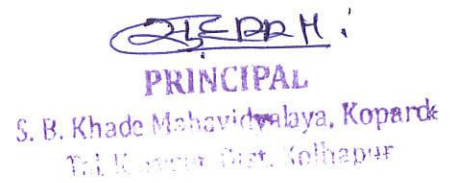 PRINCIPAL
S. B. Khade Mahavidyalaya, Koparde
Dist. Kolhapur